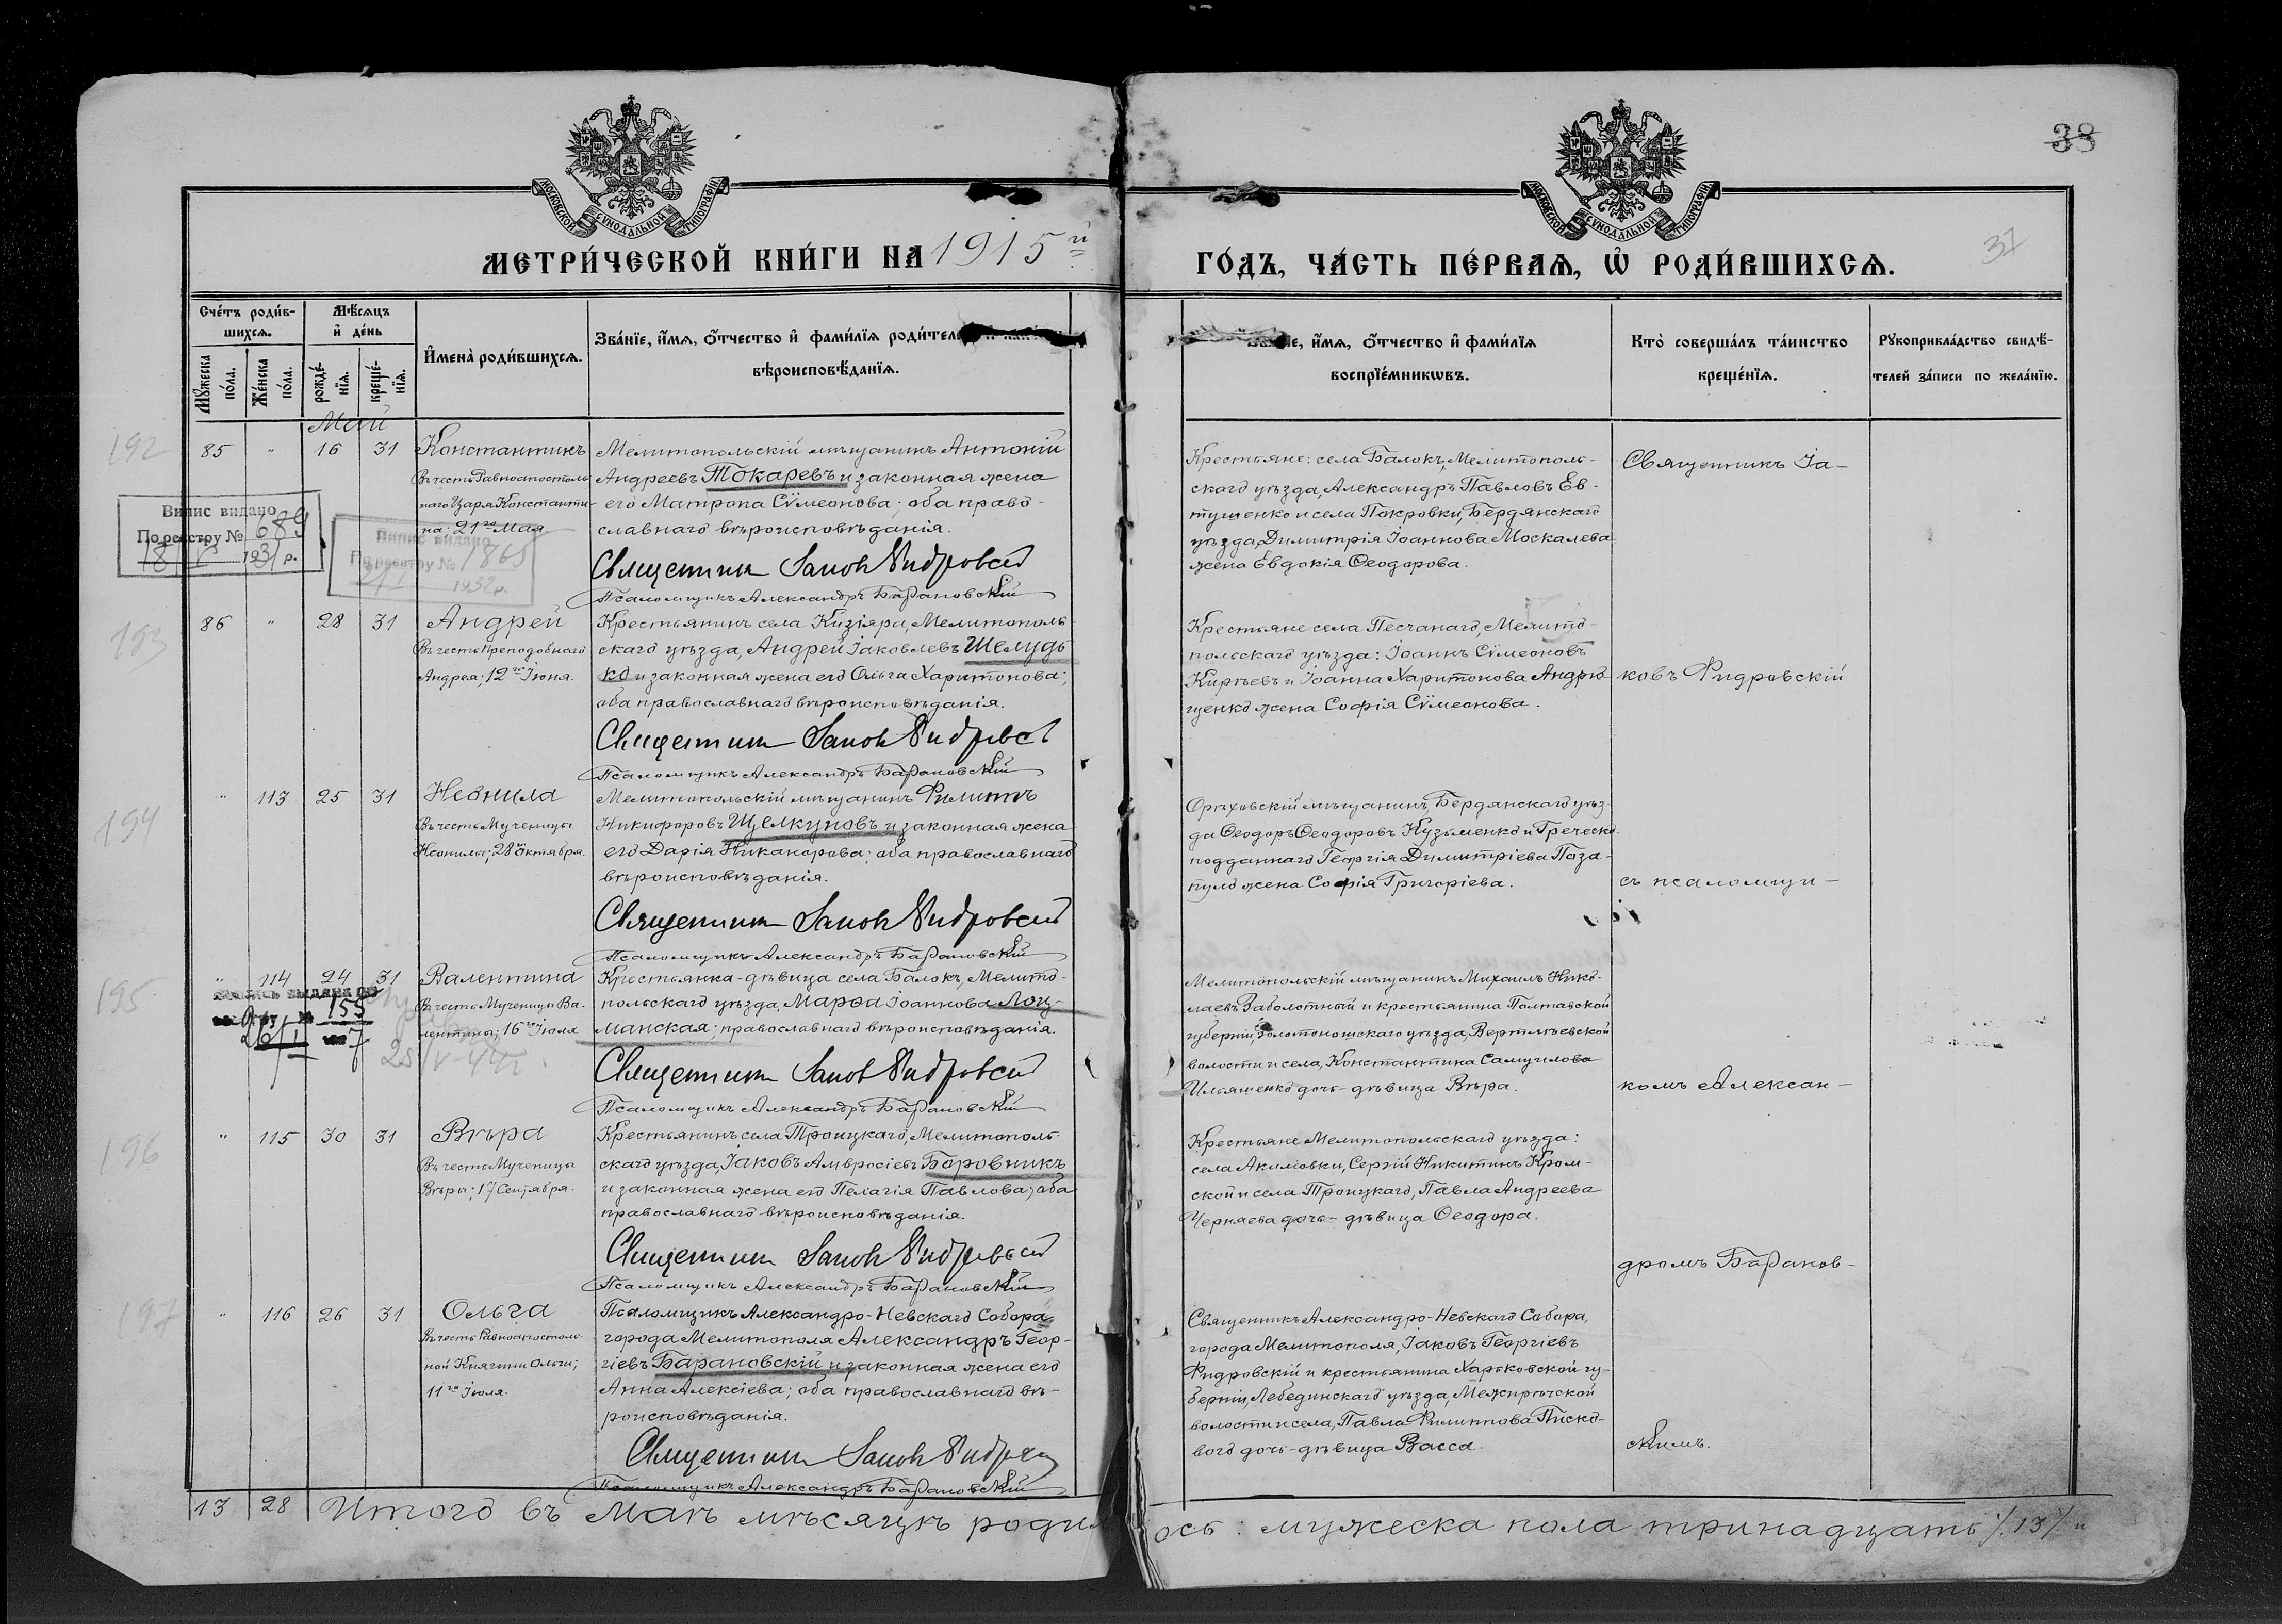 38
37
МОСКОВСКОЙ СУНОДАЛЬНОЙ ТИПОГРАФІИ
МОСКОВСКОЙ СУНОДАЛЬНОЙ ТИПОГРАФІИ
МЕТРИ́ЧЕСКОЙ КНИ́ГИ НА 1915й
ГО́ДЪ, ЧА́СТЬ ПЕ́РВАѦ, Ѡ҆ РОДИ́ВШИХСѦ.
Сче́тъ роди́в-
шихсѧ.
Мѣ́сѧцъ
и҆ де́нь
Мꙋ́жеска
по́ла.
Же́нска
по́ла.
рожде́-
нїѧ.
креще́-
нїѧ.
И҆мена̀ роди́вшихсѧ.
Зва́нїе, и҆́мѧ, ѻ҆́тчество и҆ фами́лїѧ роди́тел
вѣроисповѣ́данїѧ.
е, и҆́мѧ, ѻ҆́тчество и҆ фами́лїѧ
воспрїе́мникѡвъ.
Кто̀ соверша́лъ та́инство
креще́нїѧ.
Рꙋкоприкла́дство свидѣ́-
телей за́писи по жела́нїю.
Май
192
85 " 16 31
Константинъ
Въ честь Равноапостоль-
наго Царя Константи-
на; 21го Мая.
Мелитопольскій мѣщанинъ Антоній
Андреевъ Токаревъ и законная жена
его Матрона Сѵмеонова; оба право-
славнаго вѣроисповѣданія.
Священник Іаков Фидровскій
Псаломщикъ Александръ Барановскій
Крестьяне: села Балокъ, Мелитополь-
скаго уѣзда, Александръ Павловъ Ев-
тушенко и села Покровки, Бердянскаго
уѣзда, Димитрія Іоаннова Москалева
жена Евдокія Ѳеодорова.
Священникъ Іа-
Випис видано
По реєстру № 689
18/V 1931 р.
Випис видано
По реєстру № 1865
1932 р.
193
86 " 28 31
Андрей
Въ честь Преподобнаго
Андрея; 12го Іюня.
Крестьянинъ села Кизіяра, Мелитополь-
скаго уѣзда, Андрей Іаковлевъ Шелудь-
ко и законная жена его Ольга Харитонова;
оба православнаго вѣроисповѣданія.
Священник Іаков Фидровскій
Псаломщикъ Александръ Барановскій
Крестьяне села Песчанаго, Мелито-
польскаго уѣзда: Іоаннъ Сѵмеоновъ
Киргьевъ и Іоанна Харитонова Андрю-
щенко жена Софія Сѵмеонова.
ковъ Фидровскій
194
" 113 25 31
Неонила
Въ честь Мученицы
Неонилы; 28 Октября.
Мелитопольскій мѣщанинъ Филиппъ
Никифоровъ Щелкуновъ и законная жена
его Дарія Никанорова; оба православнаго
вѣроисповѣданія.
Священник Іаков Фидровскій
Псаломщикъ Александръ Барановскій
Орѣховскій мѣщанинъ, Бердянскаго уѣз-
да Ѳеодоръ Ѳеодоровъ Кузьменко и Греческо-
подданнаго Георгія Димитріева Поза-
пуло жена Софія Григоріева.
съ псаломщи-
195
" 114 24 31
Валентина
Въ честь Мученицы Ва-
лентины; 16го Іюля
155
25/IV-44г.
Крестьянка-дѣвица села Балокъ, Мелито-
польскаго уѣзда, Марѳа Іоаннова Лоц-
манская; православнаго вѣроисповѣданія.
Священник Іаков Фидровскій
Псаломщикъ Александръ Барановскій
Мелитопольскій мѣщанинъ Михаилъ Нико-
лаевъ Заболотный и крестьянина Полтавской
губерніи, Золотоношскаго уѣзда, Вертлѣевской
волости и села, Константина Самуилова
Ильяшенко дочь-дѣвица Вѣра.
комъ Алексан-
196
" 115 30 31
Вѣра
Въ честь Мученицы
Вѣры; 17 Сентября.
Крестьянинъ села Троицкаго, Мелитополь-
скаго уѣзда, Іаковъ Амвросіевъ Боровникъ
и законная жена его Пелагія Павлова; оба
православнаго вѣроисповѣданія.
Священник Іаков Фидровскій
Псаломщикъ Александръ Барановскій
Крестьяне Мелитопольскаго уѣзда:
села Акимовки, Сергій Никитинъ Кром-
ской и села Троицкаго, Павла Андреева
Черняева дочь-дѣвица Ѳеодора.
дромъ Баранов-
197
" 116 26 31
Ольга
Въ честь Равноапостоль-
ной Княгини Ольги;
11го Іюля.
Псаломщикъ Александро-Невскаго Собора
города Мелитополя Александръ Геор-
гіевъ Барановскій и законная жена его
Анна Алексіева; оба православнаго вѣ-
роисповѣданія.
Священник Іаков Фидровскій
Псаломщикъ Александръ Барановскій
Священникъ Александро-Невскаго Собора,
города Мелитополя, Іаковъ Георгіевъ
Фидровскій и крестьянина Харьковской гу-
берніи, Лебединскаго уѣзда, Межирѣчской
волости и села, Павла Филиппова Писко-
вого дочь-дѣвица Васса.
скимъ.
13 28 Итого въ Маѣ мѣсяцѣ родилось: мужеска пола тринадцать /13/ и